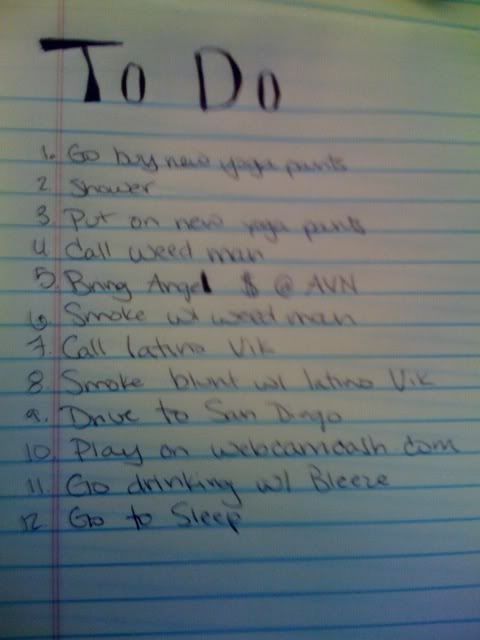 To Do
1. Go buy new yoga pants
2. Shower
3. Put on new yoga pants
4. Call weed man
5. Bring Angel $ @ AVN
6. Smoke w/ weed man
7. Call latino Vik
8. Smoke blunt w/ latino Vik
9. Drive to San Diego
10. Play on webcamcash.com
11. Go drinking w/ Bleeze
12. Go to Sleep